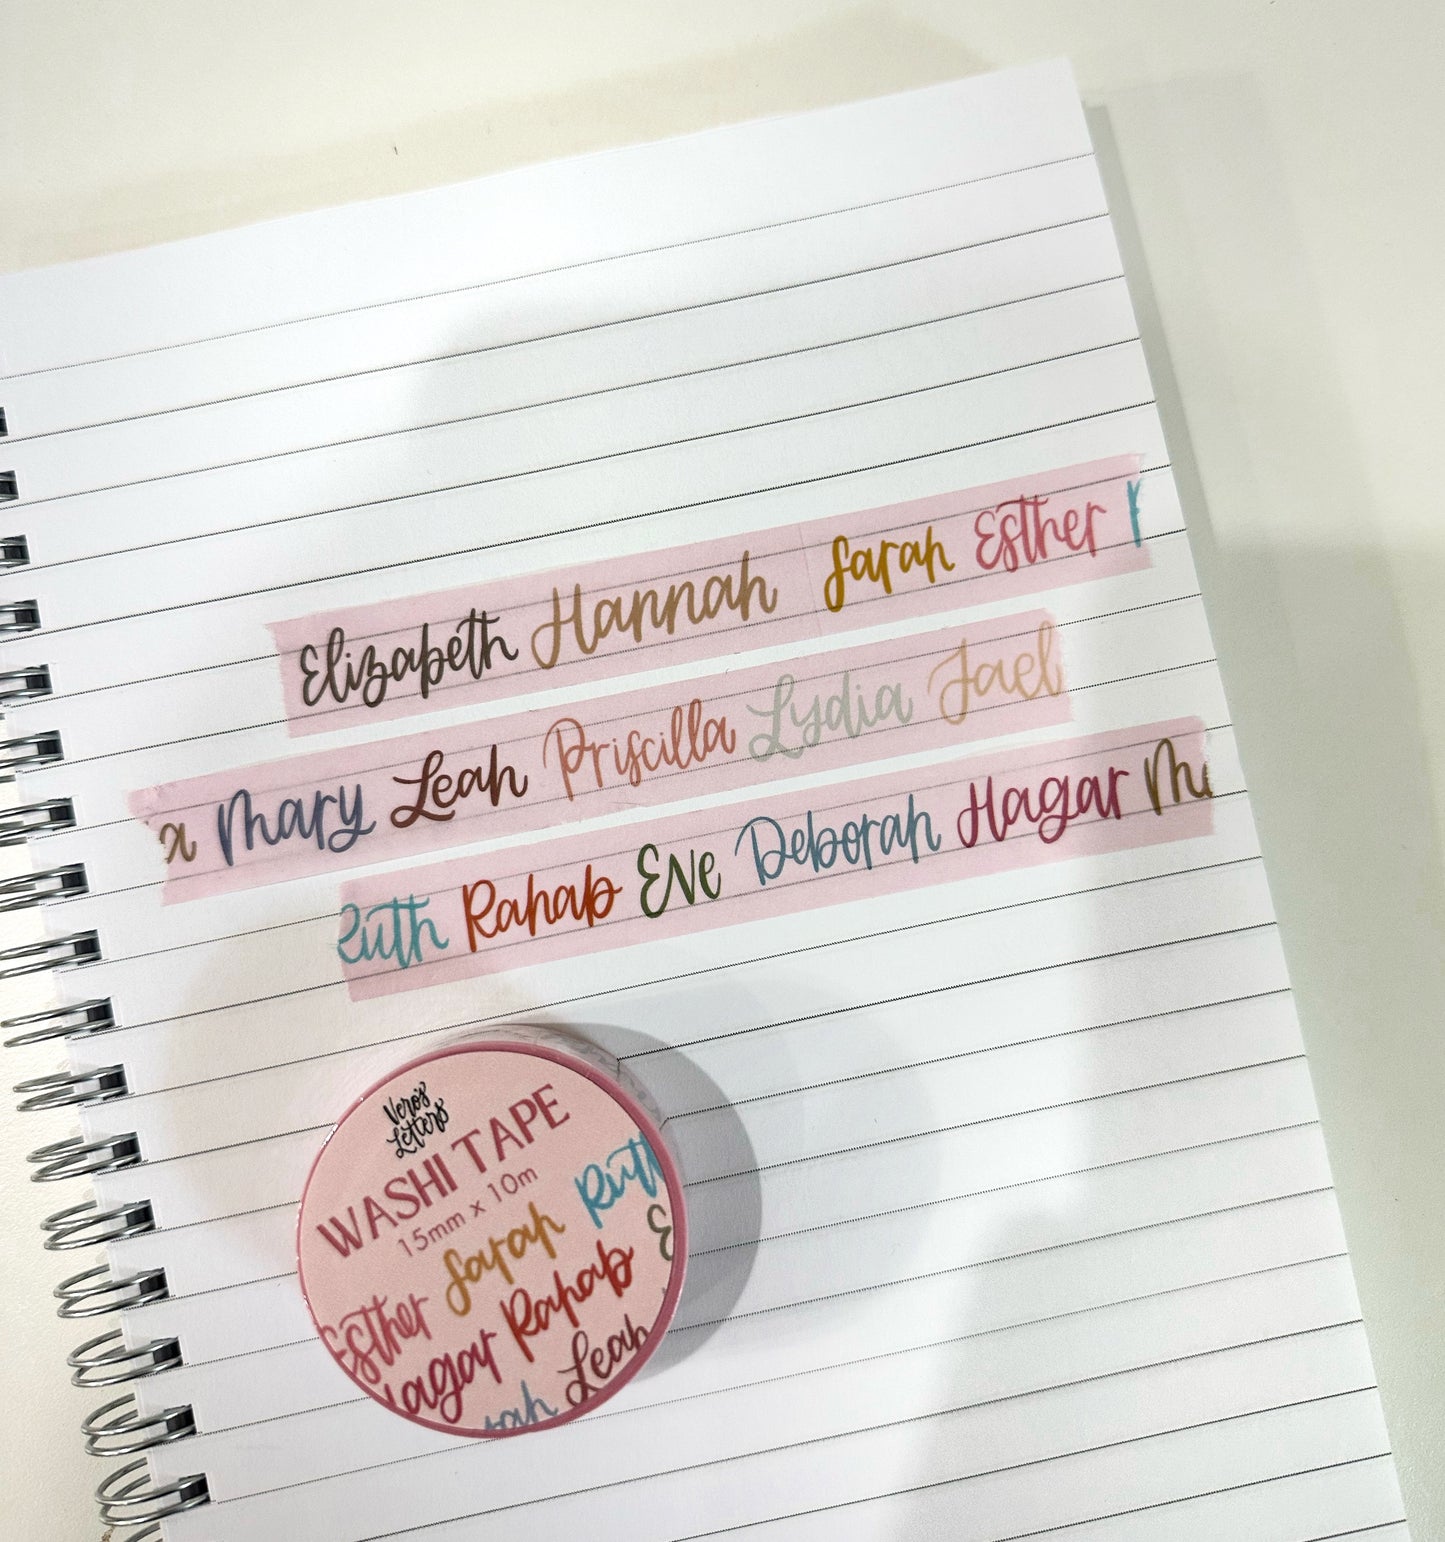 Elizabeth Hannah Sarah Esther
a Mary Leah Priscilla Lydia Jael
Ruth Rahab Eve Deborah Hagar
Vero's
Letters
WASHI TAPE
15mm x 10m
Sarah Ruth
Esther Rahab E
Hagar Leah
rah